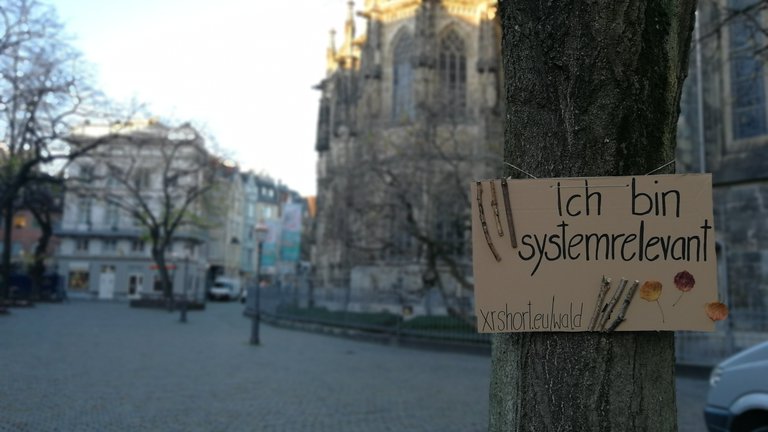 ich bin
systemrelevant
xrshort.eu/wald